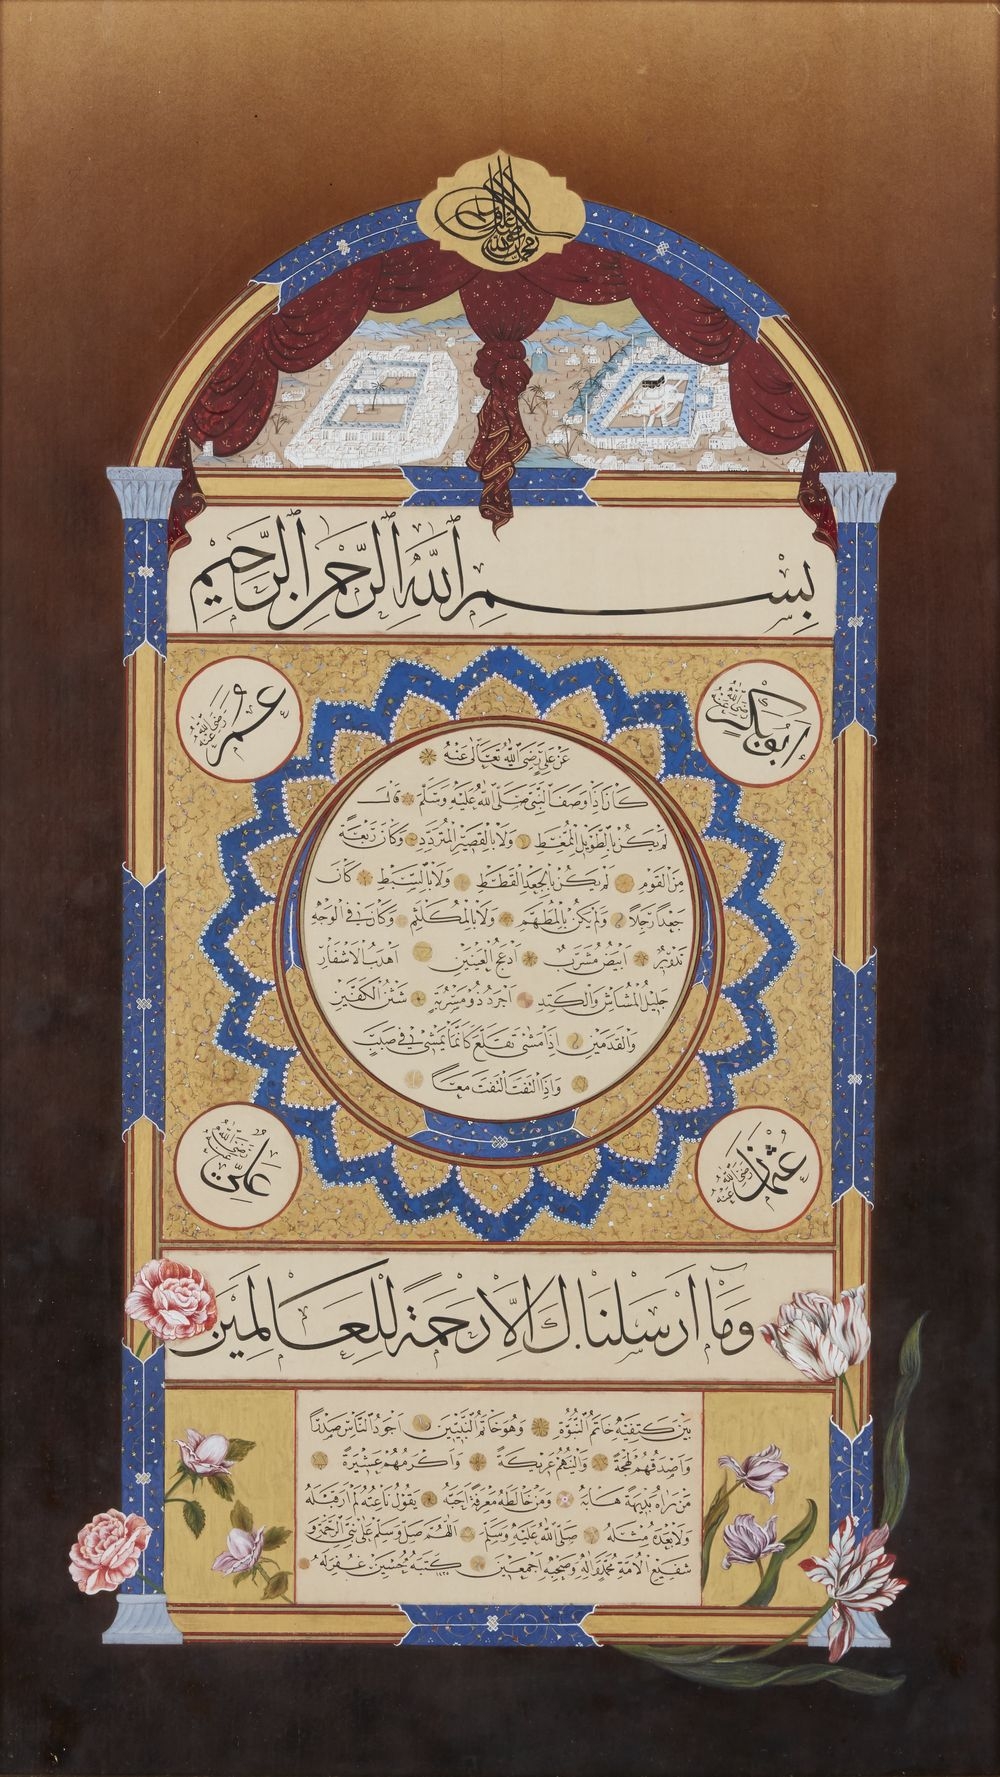 بِسْمِ اللّٰهِ الرَّحْمٰنِ الرَّحِيْمِ
ابو بكر رضى الله عنه
عمر رضى الله عنه
عَنْ عَلِىٍّ رَضِىَ اللّٰهُ تَعَالٰى عَنْهُ
كَانَ اِذَا وَصَفَ النَّبِىَّ صَلَّى اللّٰهُ عَلَيْهِ وَسَلَّمَ قَالَ
لَمْ يَكُنْ بِالطَّوِيْلِ الْمُمَّغِطِ وَلَا بِالْقَصِيْرِ الْمُتَرَدِّدِ وَكَانَ رَبْعَةً
مِنَ الْقَوْمِ لَمْ يَكُنْ بِالْجَعْدِ الْقَطَطِ وَلَا بِالسَّبِطِ كَانَ
جَعْدًا رَجِلًا وَلَمْ يَكُنْ بِالْمُطَهَّمِ وَلَا بِالْمُكَلْثَمِ وَكَانَ فِى الْوَجْهِ
تَدْوِيْرٌ اَبْيَضُ مُشْرَبٌ اَدْعَجُ الْعَيْنَيْنِ اَهْدَبُ الْاَشْفَارِ
جَلِيْلُ الْمُشَاشِ وَالْكَتَدِ اَجْرَدُ ذُوْ مَسْرُبَةٍ شَثْنُ الْكَفَّيْنِ
وَالْقَدَمَيْنِ اِذَا مَشٰى تَقَلَّعَ كَاَنَّمَا يَمْشِى فِى صَبَبٍ
وَاِذَا الْتَفَتَ الْتَفَتَ مَعًا
عثمان رضى الله عنه
على رضى الله عنه
وَمَا اَرْسَلْنَاكَ اِلَّا رَحْمَةً لِلْعَالَمِيْنَ
بَيْنَ كَتِفَيْهِ خَاتَمُ النُّبُوَّةِ وَهُوَ خَاتَمُ النَّبِيِّيْنَ اَجْوَدُ النَّاسِ صَدْرًا
وَاَصْدَقُهُمْ لَهْجَةً وَاَلْيَنُهُمْ عَرِيْكَةً وَاَكْرَمُهُمْ عَشِيْرَةً
مَنْ رَاٰهُ بَدِيْهَةً هَابَهُ وَمَنْ خَالَطَهُ مَعْرِفَةً اَحَبَّهُ يَقُوْلُ نَاعِتُهُ لَمْ اَرَ قَبْلَهُ
وَلَا بَعْدَهُ مِثْلَهُ صَلَّى اللّٰهُ عَلَيْهِ وَسَلَّمَ اَللّٰهُمَّ صَلِّ وَسَلِّمْ عَلٰى نَبِىِّ الرَّحْمَةِ وَ
شَفِيْعِ الْاُمَّةِ مُحَمَّدٍ وَاٰلِهِ وَصَحْبِهِ اَجْمَعِيْنَ كَتَبَهُ حُسَيْن غُفِرَ لَهُ